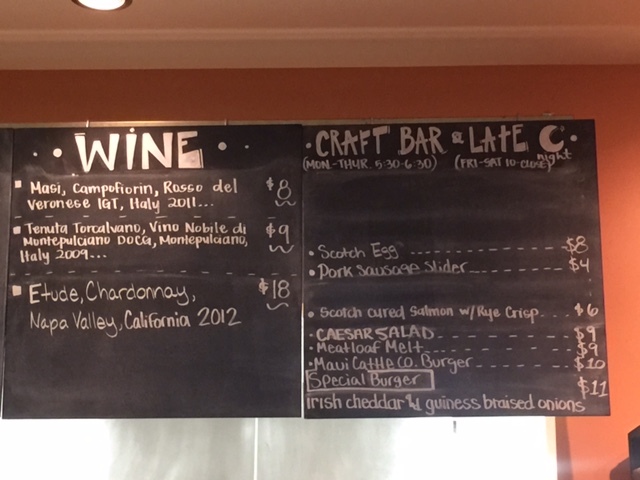 WINE
Masi, Campofiorin, Rosso del $8
Veronese IGT, Italy 2011...
Tenuta Torcalvano, Vino Nobile di $9
Montepulciano DOCG, Montepulciano,
Italy 2009...
Etude, Chardonnay, $18
Napa Valley, California 2012
CRAFT BAR & LATE night
(MON.-THUR. 5:30-6:30) (FRI-SAT 10-CLOSE)
Scotch Egg $8
Pork Sausage Slider $4
Scotch cured Salmon w/Rye Crisp $6
CAESAR SALAD $9
Meatloaf Melt $9
Maui Cattle CO. Burger $10
Special Burger $11
irish cheddar w/ guiness braised onions